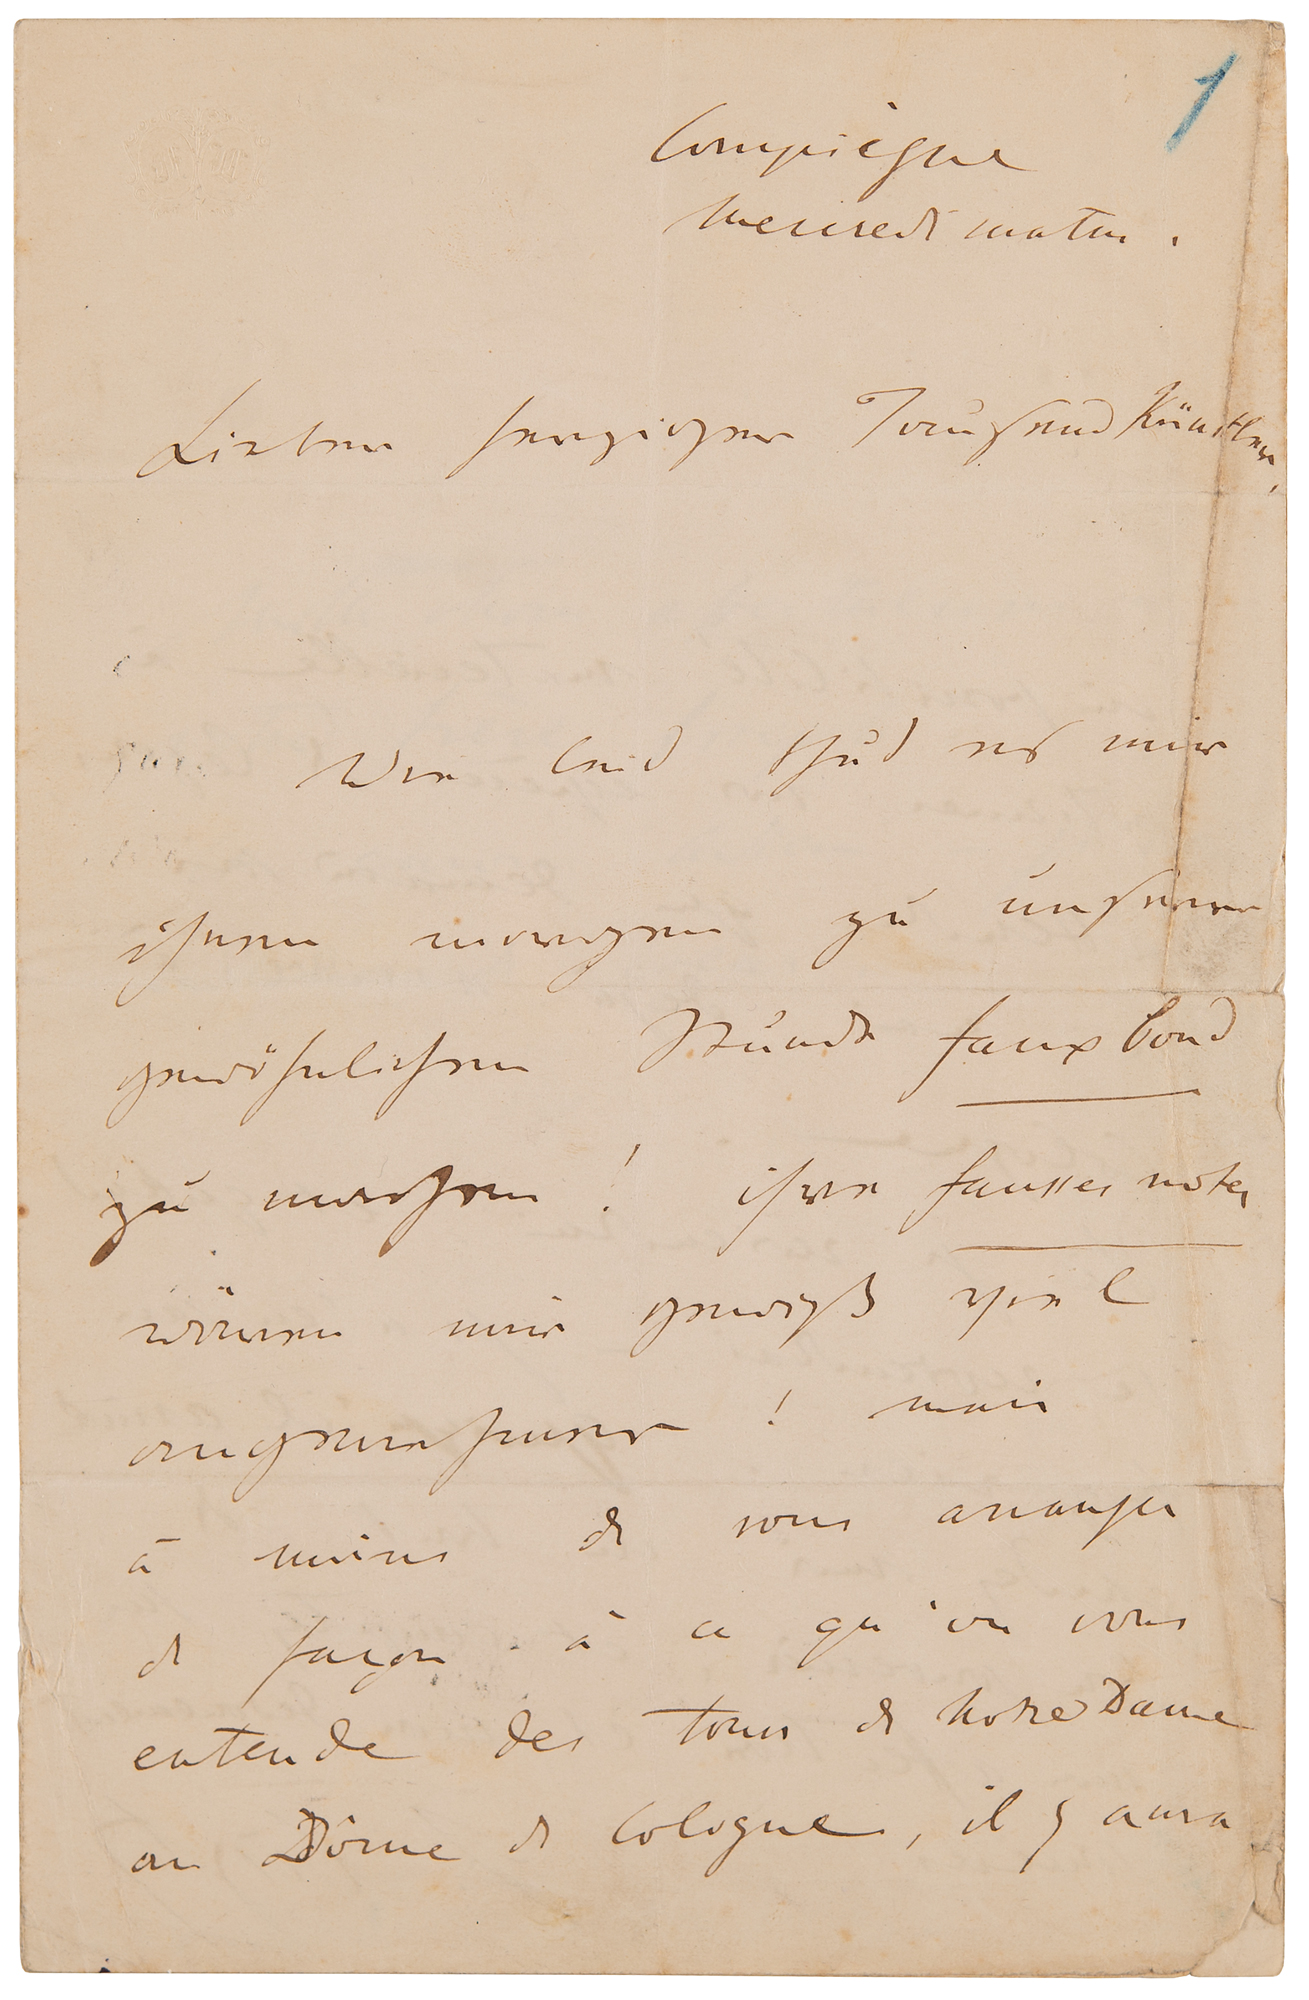 1
Compiègne
Mercredi matin.
Lieber herziger Tausend Künstler,
Wie leid thud es mir
ihnen morgen zu unserer
gewöhnlichen Stunde faux bond
zu machen! ihre fausses notes
wären mir gewiß viel
angenehmer! mais
à moins de vous arranger
de façon à ce qu'on vous
entende des tours de Notre Dame
au Dôme de Cologne, il y aura